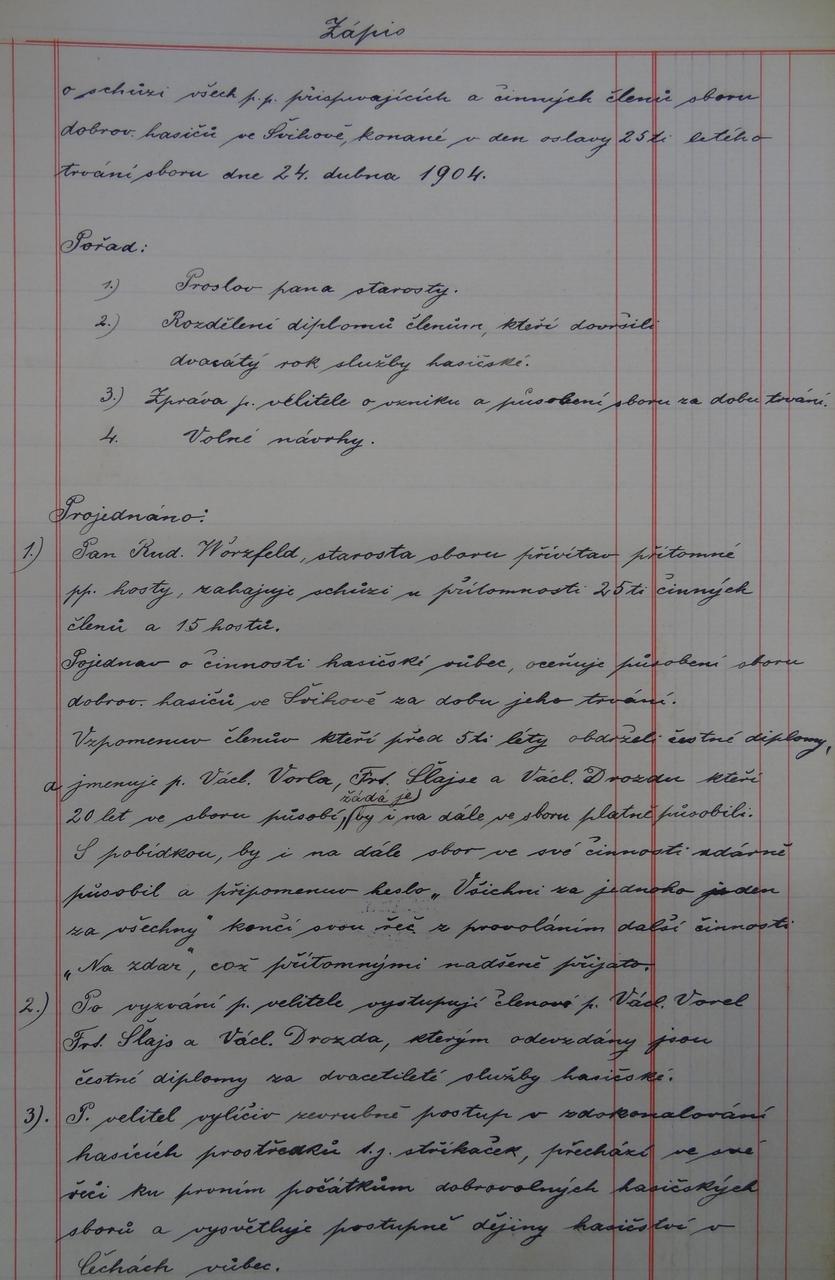 Zápis
o schůzi všech p.p. přispívajících a činných členů sboru
dobrov. hasičů ve Švihově, konané v den oslavy 25ti letého
trvání sboru dne 24. dubna 1904.
Pořad:
1.) Proslov pana starosty.
2.) Rozdělení diplomů členům, kteří dovršili
dvacátý rok služby hasičské.
3.) Zpráva p. velitele o vzniku a působení sboru za dobu trvání.
4. Volné návrhy.
Projednáno:
1.) Pan Rud. Worzfeld, starosta sboru přivítav přítomné
pp. hosty, zahajuje schůzi u přítomnosti 25ti činných
členů a 15 hostů.
Pojednav o činnosti hasičské vůbec, oceňuje působení sboru
dobrov. hasičů ve Švihově za dobu jeho trvání.
Vzpomenuv členův kteří před 5ti léty obdrželi čestné diplomy,
a jmenuje p. Václ. Vorla, Frt. Šlajse a Václ. Drozdu kteří
žádá je
20 let ve sboru působí, by i na dále ve sboru platně působili.
S pobídkou, by i na dále sbor ve své činnosti zdárně
působil a připomenuv heslo „Všichni za jednoho jeden
za všechny" končí svou řeč z provoláním další činnosti
„Na zdar", což přítomnými nadšeně přijato.
2.) Po vyzvání p. velitele vystupují členové p. Václ. Vorel
Frt. Šlajs a Václ. Drozda, kterým odevzdány jsou
čestné diplomy za dvacetileté služby hasičské.
3). P. velitel vylíčiv zevrubně postup v zdokonalování
hasících prostředků t.j. stříkaček, přechází ve své
řeči ku prvním počátkům dobrovolných hasičských
sborů a vysvětluje postupně dějiny hasičství v
Čechách vůbec.